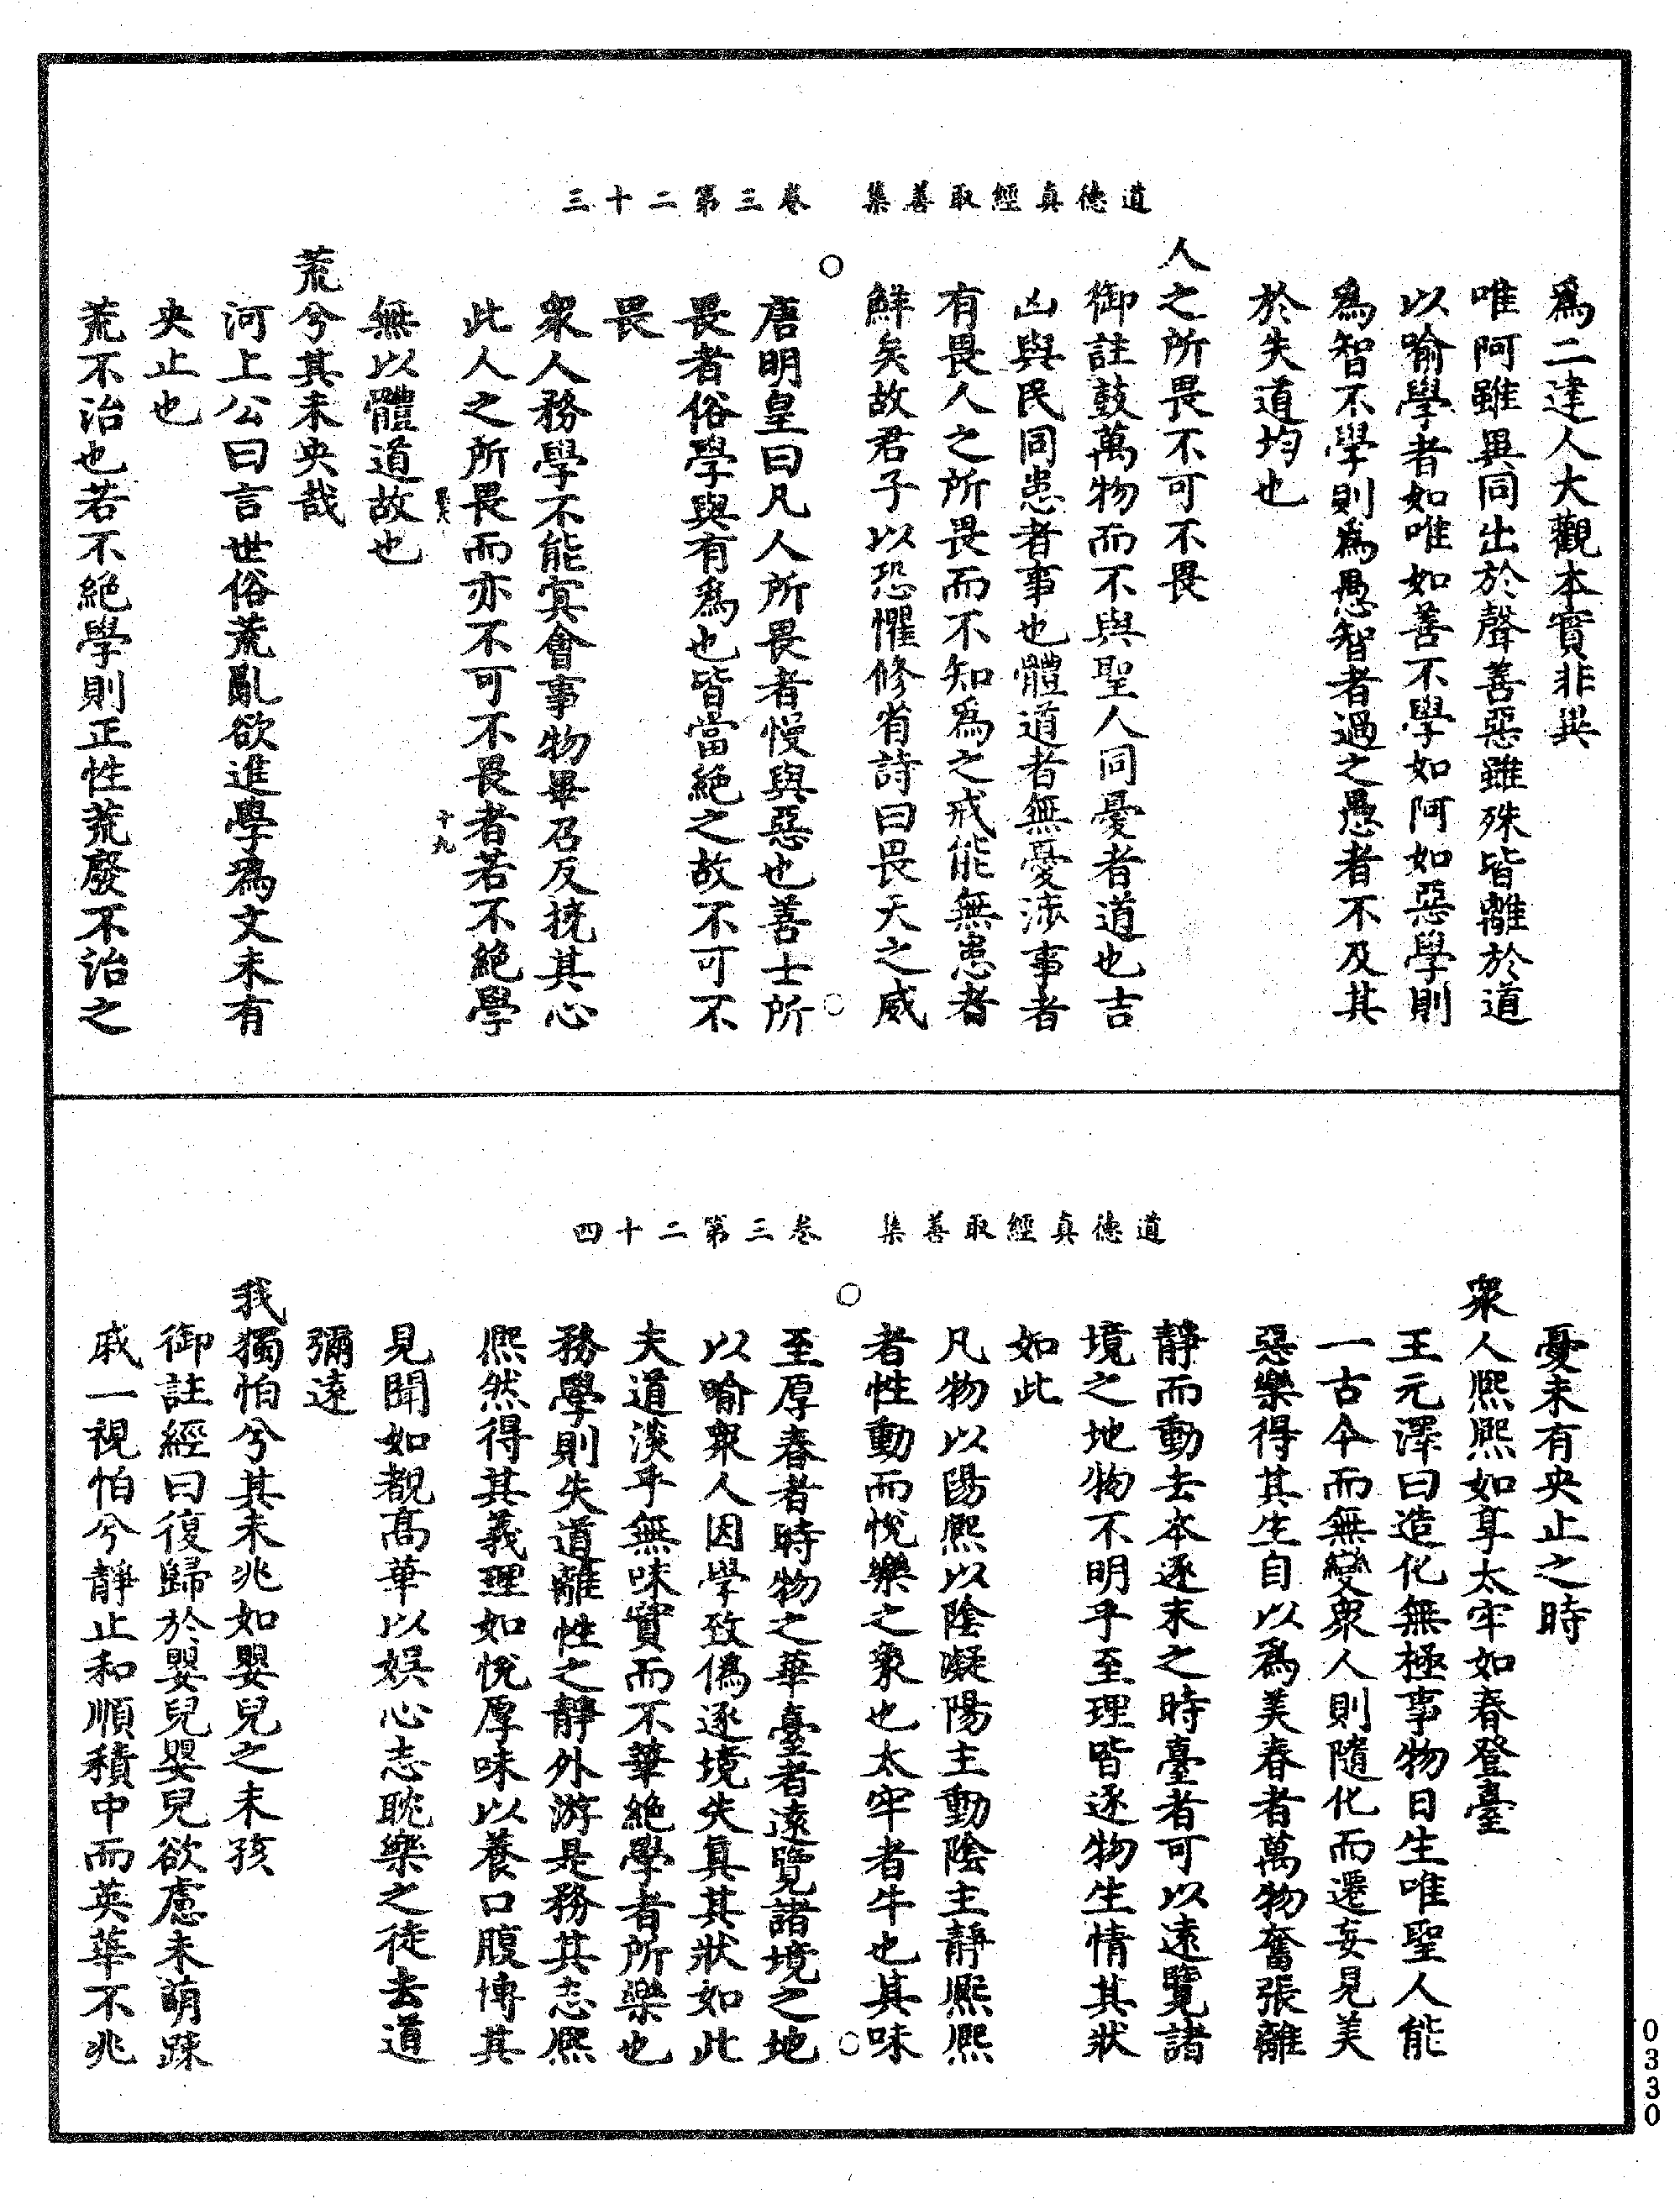 道德真經取善集　卷三第二十三
爲二達人大觀本實非異
唯阿雖異同出於聲善惡雖殊皆離於道
以喻學者如唯如善不學如阿如惡學則
爲智不學則爲愚智者過之愚者不及其
於失道均也
人之所畏不可不畏
御註鼓萬物而不與聖人同憂者道也吉
凶與民同患者事也體道者無憂涉事者
有畏人之所畏而不知爲之戒能無患者
鮮矣故君子以恐懼修省詩曰畏天之威
唐明皇曰凡人所畏者慢與惡也善士所
畏者俗學與有爲也皆當絕之故不可不
畏
衆人務學不能寘會事物畢召反撓其心
此人之所畏而亦不可不畏者若不絕學
十九
無以體道故也
荒兮其未央哉
河上公曰言世俗荒亂欲進學爲文未有
央止也
荒不治也若不絕學則正性荒廢不治之
道德真經取善集　卷三第二十四
憂未有央止之時
衆人熈熈如享太牢如春登臺
王元澤曰造化無極事物日生唯聖人能
一古今而無變衆人則隨化而遷妄見美
惡樂得其生自以爲美春者萬物奮張離
靜而動去本逐末之時臺者可以遠覽諸
境之地物不明乎至理皆逐物生情其狀
如此
凡物以陽熈以陰凝陽主動陰主靜熈熈
者性動而悅樂之象也太牢者牛也其味
至厚春者時物之華臺者遠覽諸境之地
以喻衆人因學致僞逐境失真其狀如此
夫道淡乎無味實而不華絕學者所樂也
務學則失道離性之靜外游是務其志熈
熈然得其義理如悅厚味以養口腹博其
見聞如覩高華以娱心志耽樂之徒去道
彌遠
我獨怕兮其未兆如嬰兒之未孩
御註經曰復歸於嬰兒嬰兒欲慮未萌踈
戚一視怕兮靜止和順積中而英華不兆
0330